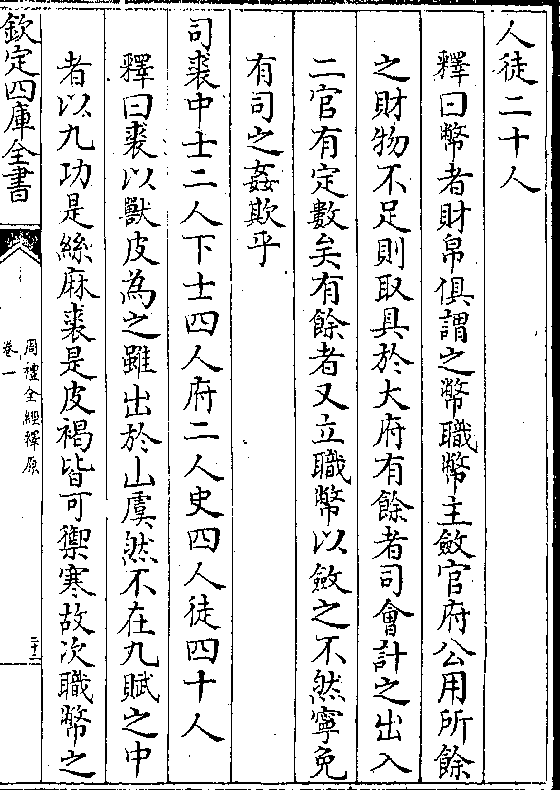 人徒二十人
釋曰幣者財帛俱謂之幣職幣主斂官府公用所餘
之財物不足則取具於大府有餘者司會計之出入
二官有定數矣有餘者又立職幣以斂之不然寧免
有司之姦欺乎
司裘中士二人下士四人府二人史四人徒四十人
釋曰裘以獸皮為之雖出於山虞然不在九賦之中
者以九功是絲麻裘是皮褐皆可禦寒故次職幣之
欽定四庫全書
周禮全經釋原
卷一
二十二